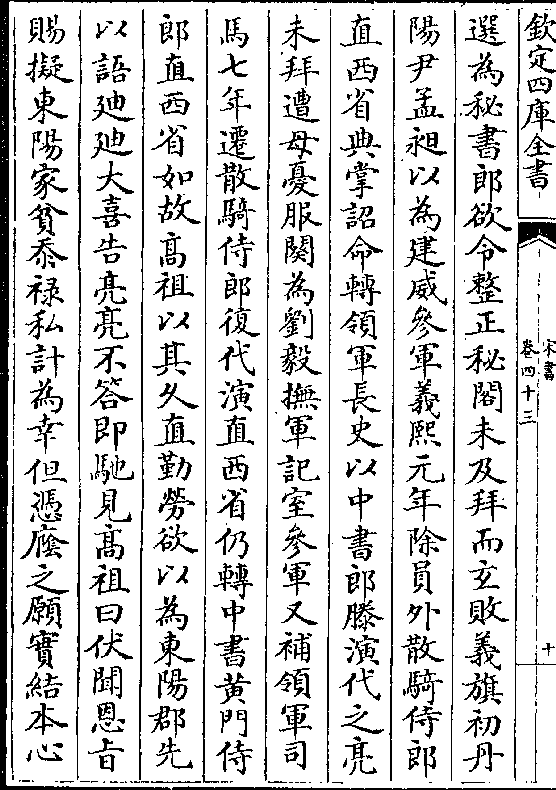 欽定四庫全書
宋書
卷四十三
十
選為秘書郎欲令整正秘閣未及拜而玄敗義旗初丹
陽尹孟昶以為建威參軍義熙元年除員外散騎侍郎
直西省典掌詔命轉領軍長史以中書郎滕演代之亮
未拜遭母憂服闋為劉毅撫軍記室參軍又補領軍司
馬七年遷散騎侍郎復代演直西省仍轉中書黄門侍
郎直西省如故高祖以其久直勤勞欲以為東陽郡先
以語廸廸大喜告亮亮不答即馳見高祖曰伏聞恩旨
賜擬東陽家貧忝禄私計為幸但憑廕之願實結本心